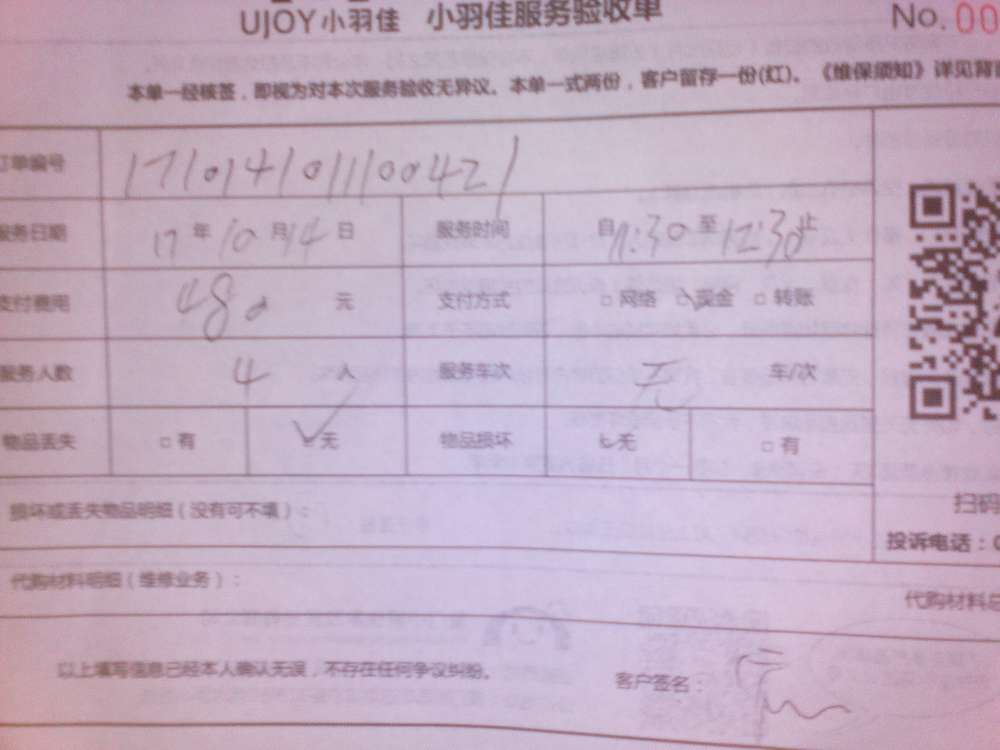 UJOY小羽佳 小羽佳服务验收单 No.00
本单一经核签，即视为对本次服务验收无异议。本单一式两份，客户留存一份(红)。《维保须知》详见背
订单编号 1710141011100421
服务日期 17年10月14日 服务时间 自11:30至12:30止
支付费用 480 元 支付方式 □网络 □现金 □转账
服务人数 4 人 服务车次 无 车/次
物品丢失 □有 无 物品损坏 无 □有
损坏或丢失物品明细（没有可不填）：
扫码
投诉电话：
代购材料明细（维修业务）：
代购材料总
以上填写信息已经本人确认无误，不存在任何争议纠纷。
客户签名：